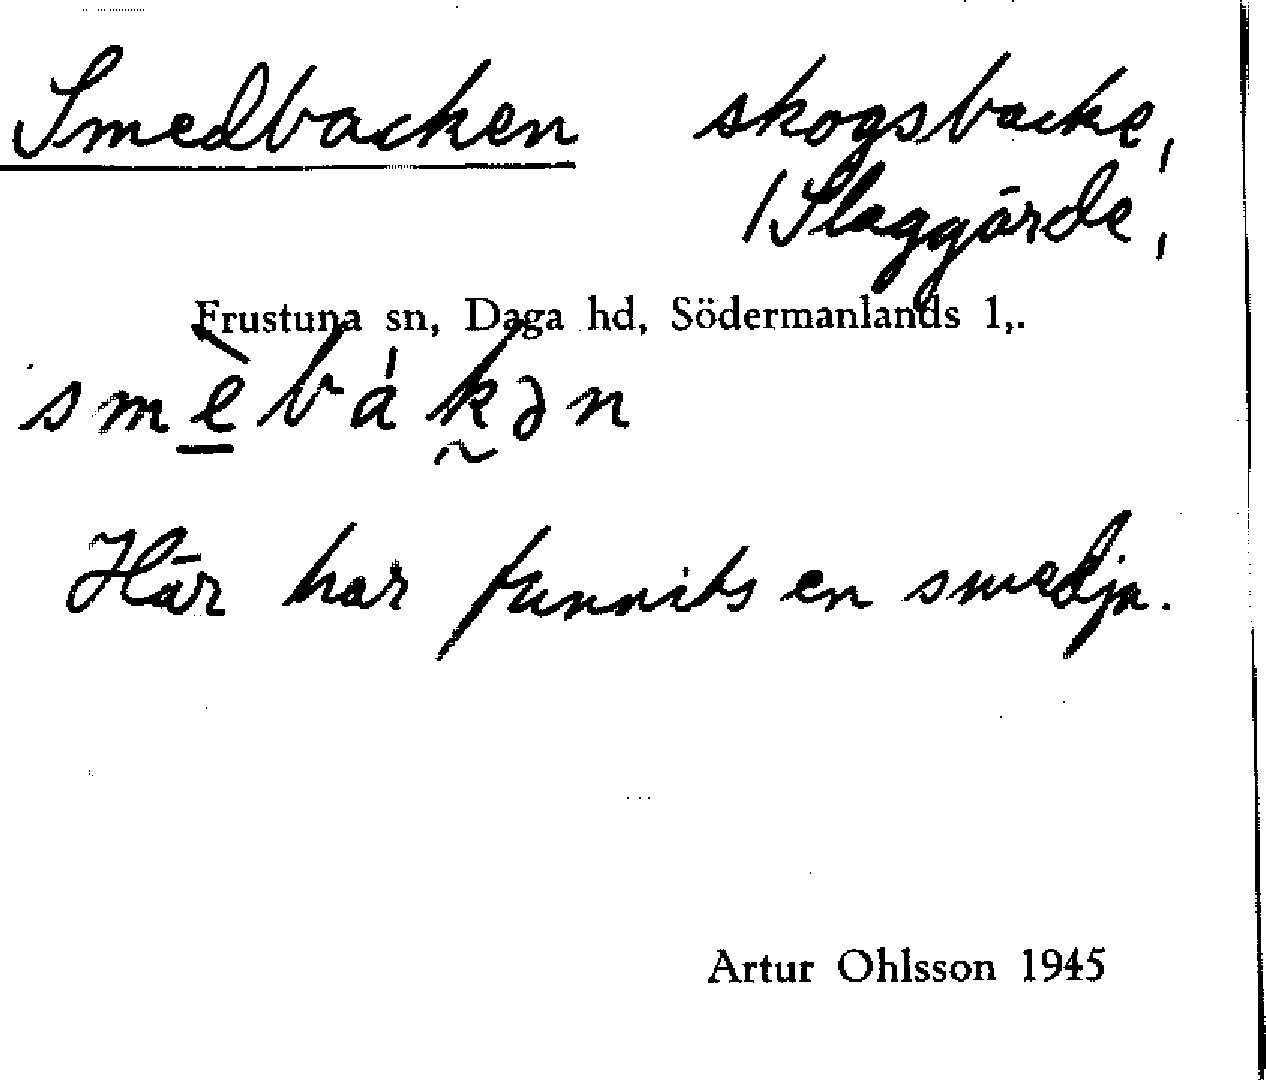 Smedbacken skogsbacke,
/Slaggärde,
Frustuna sn, Daga hd, Södermanlands l,.
smèbákən
Här har funnits en smedja.
Artur Ohlsson 1945